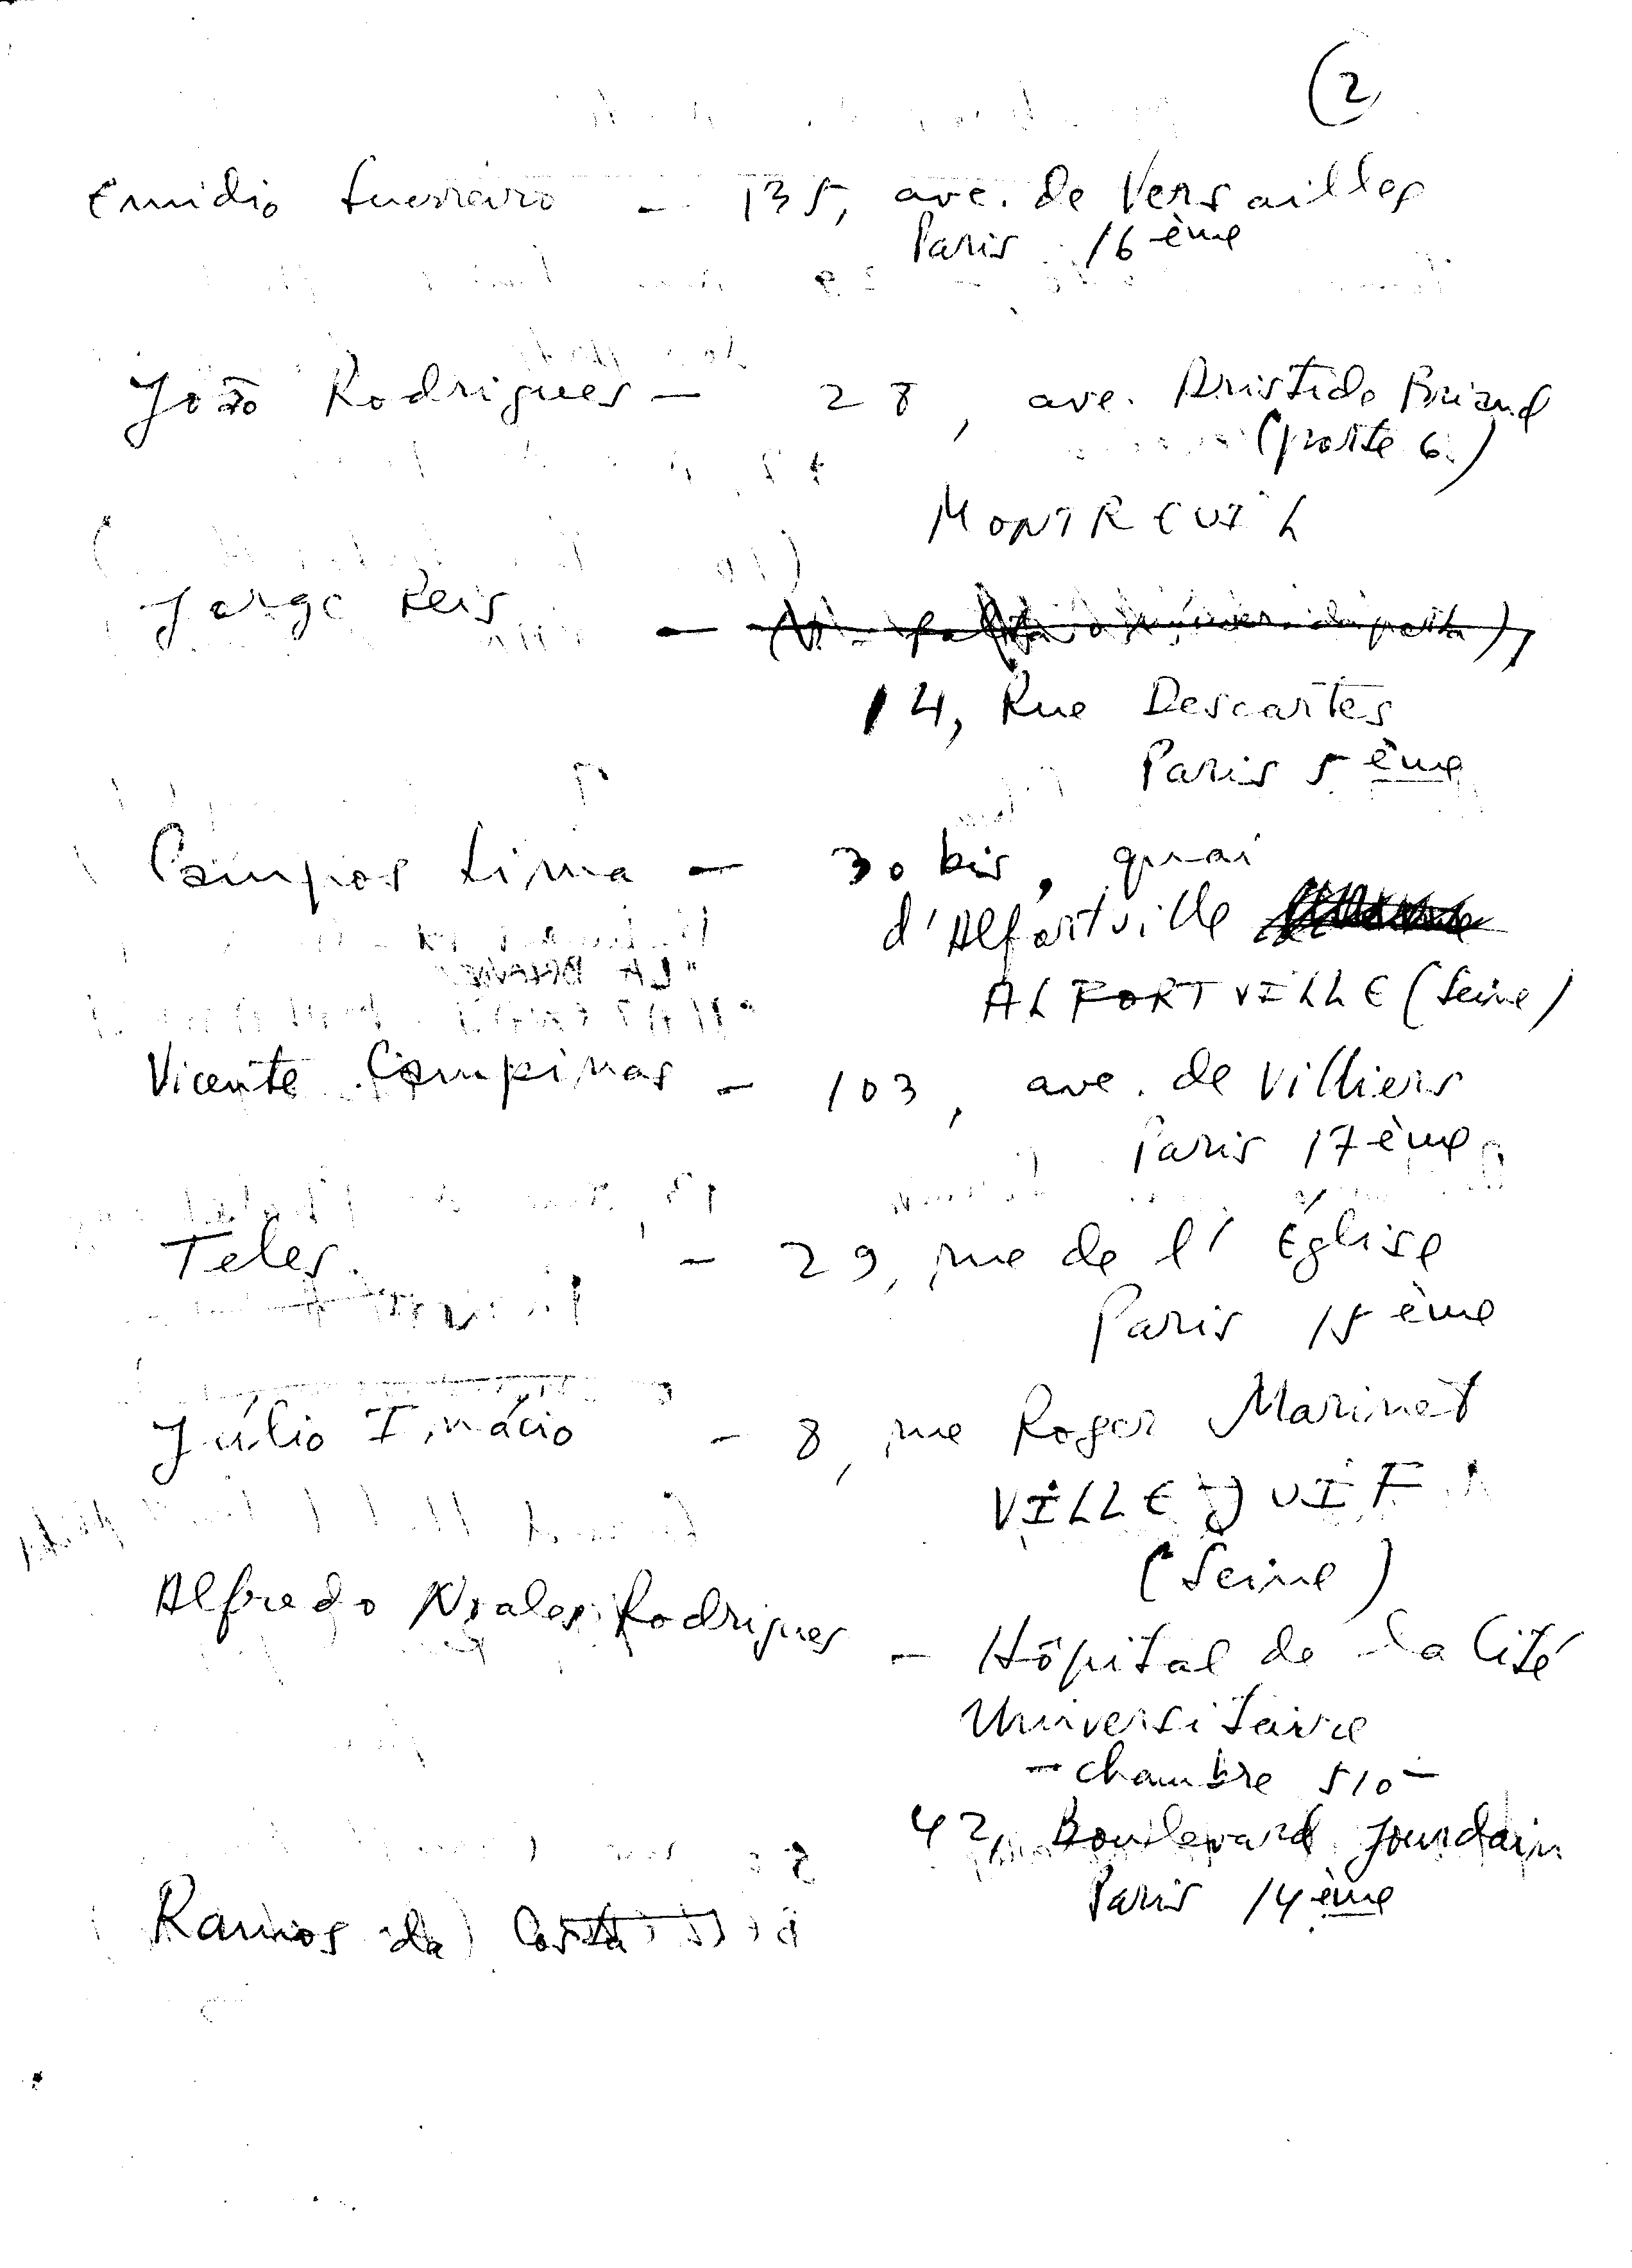 (2)
Emidio Guerreiro — 135, ave. de Versailles
Paris 16ème
João Rodrigues — 28, ave. Aristide Briand
(porte 6)
MONTREUIL
Jorge Reis — 
14, Rue Descartes
Paris 5ème
Campos Lima — 30 bis, quai
d'Alfortville
ALFORTVILLE (Seine)
Vicente Campinas — 103, ave. de Villiers
Paris 17ème
Teles — 29, rue de l'Église
Paris 15ème
Júlio Inácio — 8, rue Roger Marinet
VILLEJUIF
(Seine)
Alfredo Noales Rodrigues — Hôpital de la Cité
Universitaire
— chambre 510 —
42, Boulevard Jourdain
Paris 14ème
Ramos da Costa